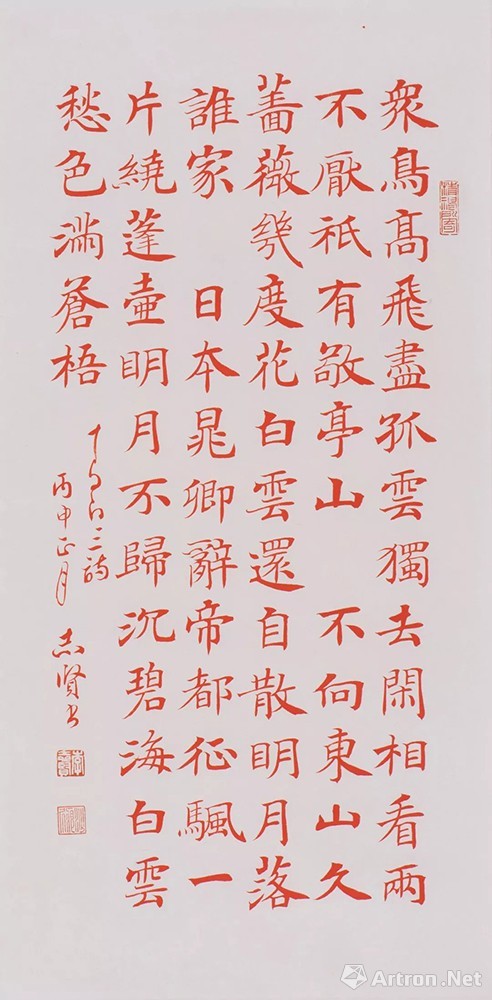 衆鳥髙飛盡孤雲獨去閑相看兩
不厭祇有敬亭山 不向東山久
薔薇幾度花白雲還自散明月落
誰家 日本晁卿辭帝都征颿一
片繞蓬壺明月不歸沉碧海白雲
愁色滿蒼梧
白三詩
丙申正月
志賢书
Artron.Net